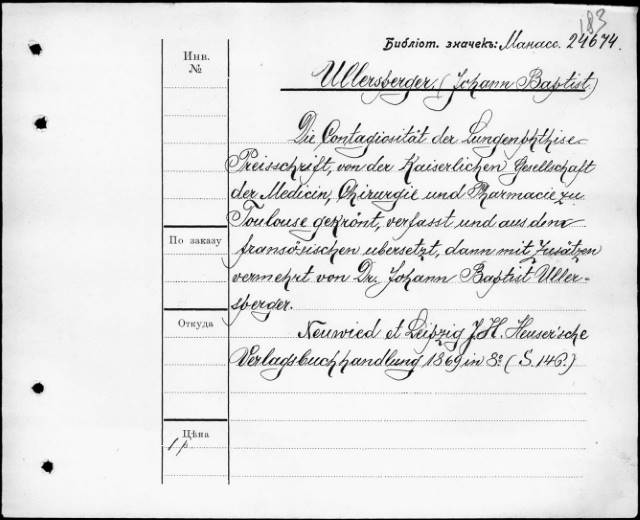 183
Библіот. значекъ: Манасс. 24674.
Инв.
№
Ullersberger. (Johann Baptist.)
Die Contagiosität der Lungenphthise
Preisschrift, von der Kaiserlichen Gesellschaft
der Medicin, Chirurgie und Pharmacie zu
Toulouse gekrönt, verfasst und aus dem
По заказу
fransösischen ubersetzt, dann mit Zusätzen
vermehrt von Dr. Johann Baptist Uller-
sberger.
Откуда
Neuwied et Leipzig J. H. Heuser'sche
Verlagsbuchhandlung 1869 in 8º (S. 146.)
Цѣна
1 р.